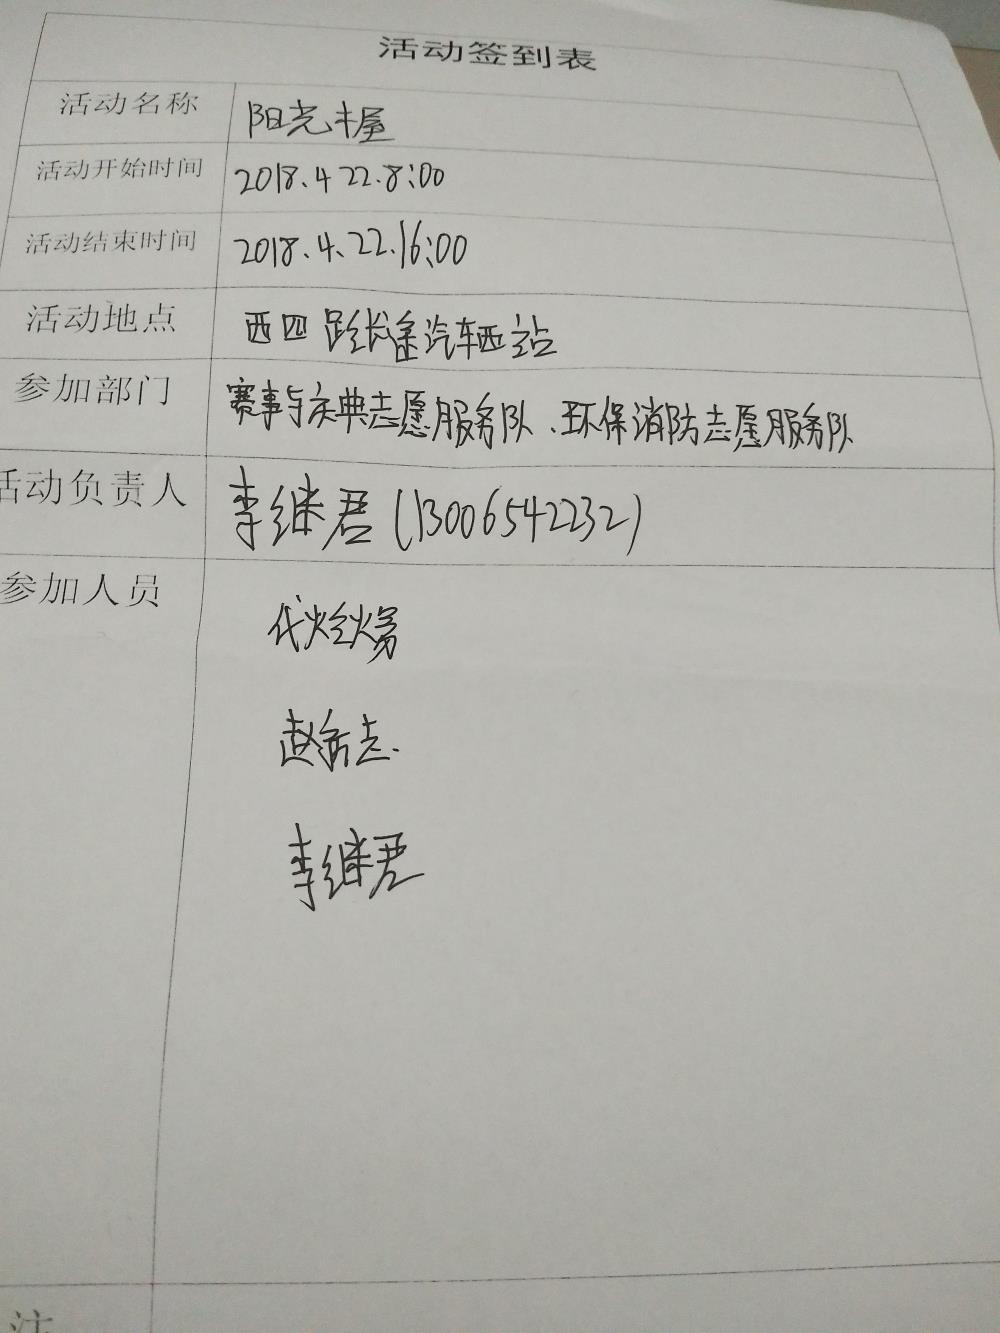 活动签到表
活动名称 阳光小屋
活动开始时间 2018.4 22.8:00
活动结束时间 2018.4.22.16:00
活动地点 西四路长途汽车西站
参加部门 赛事与庆典志愿服务队、环保消防志愿服务队
活动负责人 李继君(13006542232)
参加人员
赵 志.
李继君
注